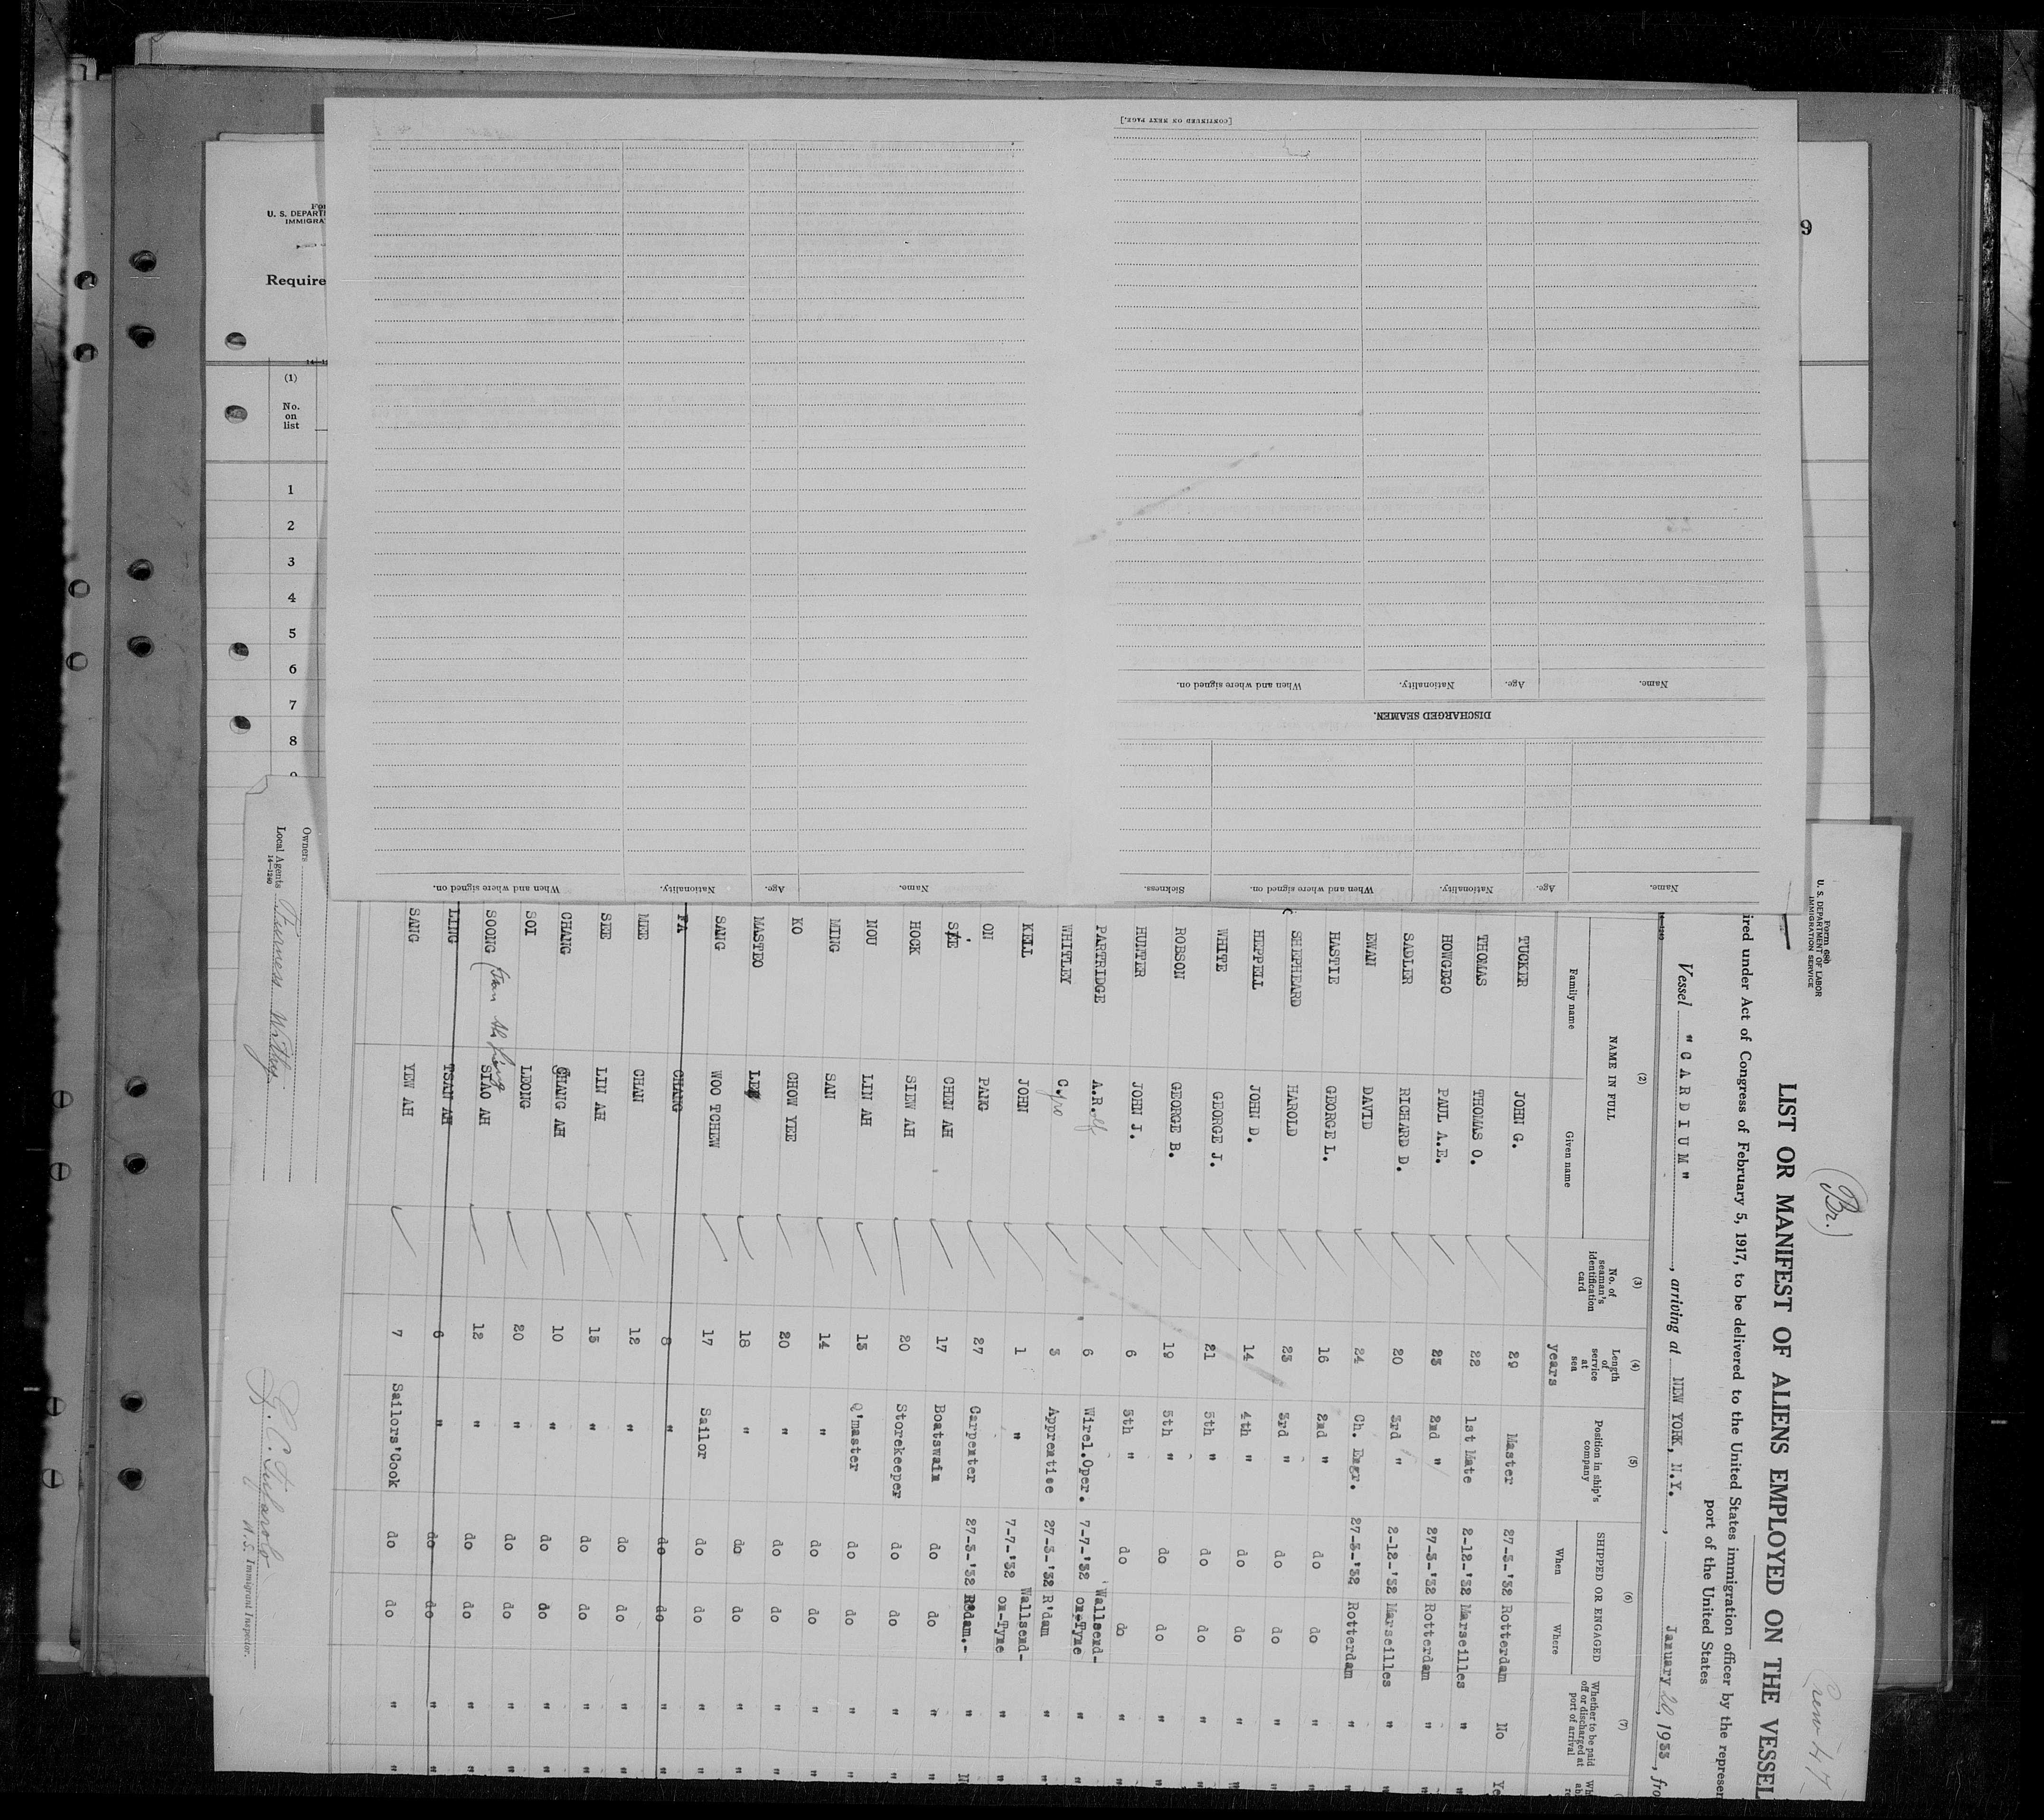 For
U. S. DEPARTM
IMMIGRA
Require
(1)
No.
on
list
1
2
3
4
5
6
7
8
9
9
[CONTINUED ON NEXT PAGE.]
Name. Age. Nationality. When and where signed on.
DISCHARGED SEAMEN.
Name. Age. Nationality. When and where signed on. Sickness.
Name. Age. Nationality. When and where signed on.
Form 689
U. S. DEPARTMENT OF LABOR
IMMIGRATION SERVICE
(Br.)
Crew 47
LIST OR MANIFEST OF ALIENS EMPLOYED ON THE VESSEL
ired under Act of Congress of February 5, 1917, to be delivered to the United States immigration officer by the represen
port of the United States
Vessel "CARDIUM", arriving at NEW YORK, N.Y., January 22, 1933, fro
14-1240
(2) (3) (4) (5) (6) (7)
NAME IN FULL
Family name Given name
No. of seaman's identification card
Length of service at sea
Position in ship's company
SHIPPED OR ENGAGED
When Where
Whether to be paid off or discharged at port of arrival
years
TUCKER JOHN G. 29 Master 27-3-'32 Rotterdam No Ye
THOMAS THOMAS O. 22 1st Mate 2-12-'32 Marseilles " "
HOWGEGO PAUL A.E. 23 2nd " 27-3-'32 Rotterdam " "
SADLER RICHARD D. 20 3rd " 2-12-'32 Marseilles " "
EWAN DAVID 24 Ch. Engr. 27-3-'32 Rotterdam " "
HASTIE GEORGE L. 16 2nd " do do " "
SHEPHEARD HAROLD 23 3rd " do do " "
HEPPELL JOHN D. 14 4th " do do " "
WHITE GEORGE J. 21 5th " do do " "
ROBSON GEORGE B. 19 5th " do do " "
HUNTER JOHN J. 6 5th " do do " "
PARTRIDGE A.R. 6 Wirel.Oper. 7-7-'32 Wallsend-on-Tyne " "
WHITLEY C. 3 Apprentice 27-3-'32 R'dam " "
KELL JOHN 1 " 7-7-'32 Wallsend-on-Tyne " "
ON PANG 27 Carpenter 27-3-'32 R'dam.- " N
SIE CHEN AH 17 Boatswain do do " "
HOCK SIEW AH 20 Storekeeper do do " "
NOU LIN AH 13 Q'master do do " "
MING SAN 14 " do do " "
KO CHOW YEE 20 " do do " "
MASTEO LEE 18 " do do " "
SANG WOO TCHEW 17 Sailor do do " "
FA CHANG 8 " do do " "
MEE CHAN 12 " do do " "
SEE LIN AH 15 " do do " "
CHANG CHANG AH 10 " do do " "
SOI LEONG 20 " do do " "
SOONG SIAO AH 12 " do do " "
LING TSAN AH 6 " do do " "
SANG YEW AH 7 Sailors'Cook do do " "
Owners
Local Agents Furness Withy
14-1240
U.S. Immigrant Inspector.